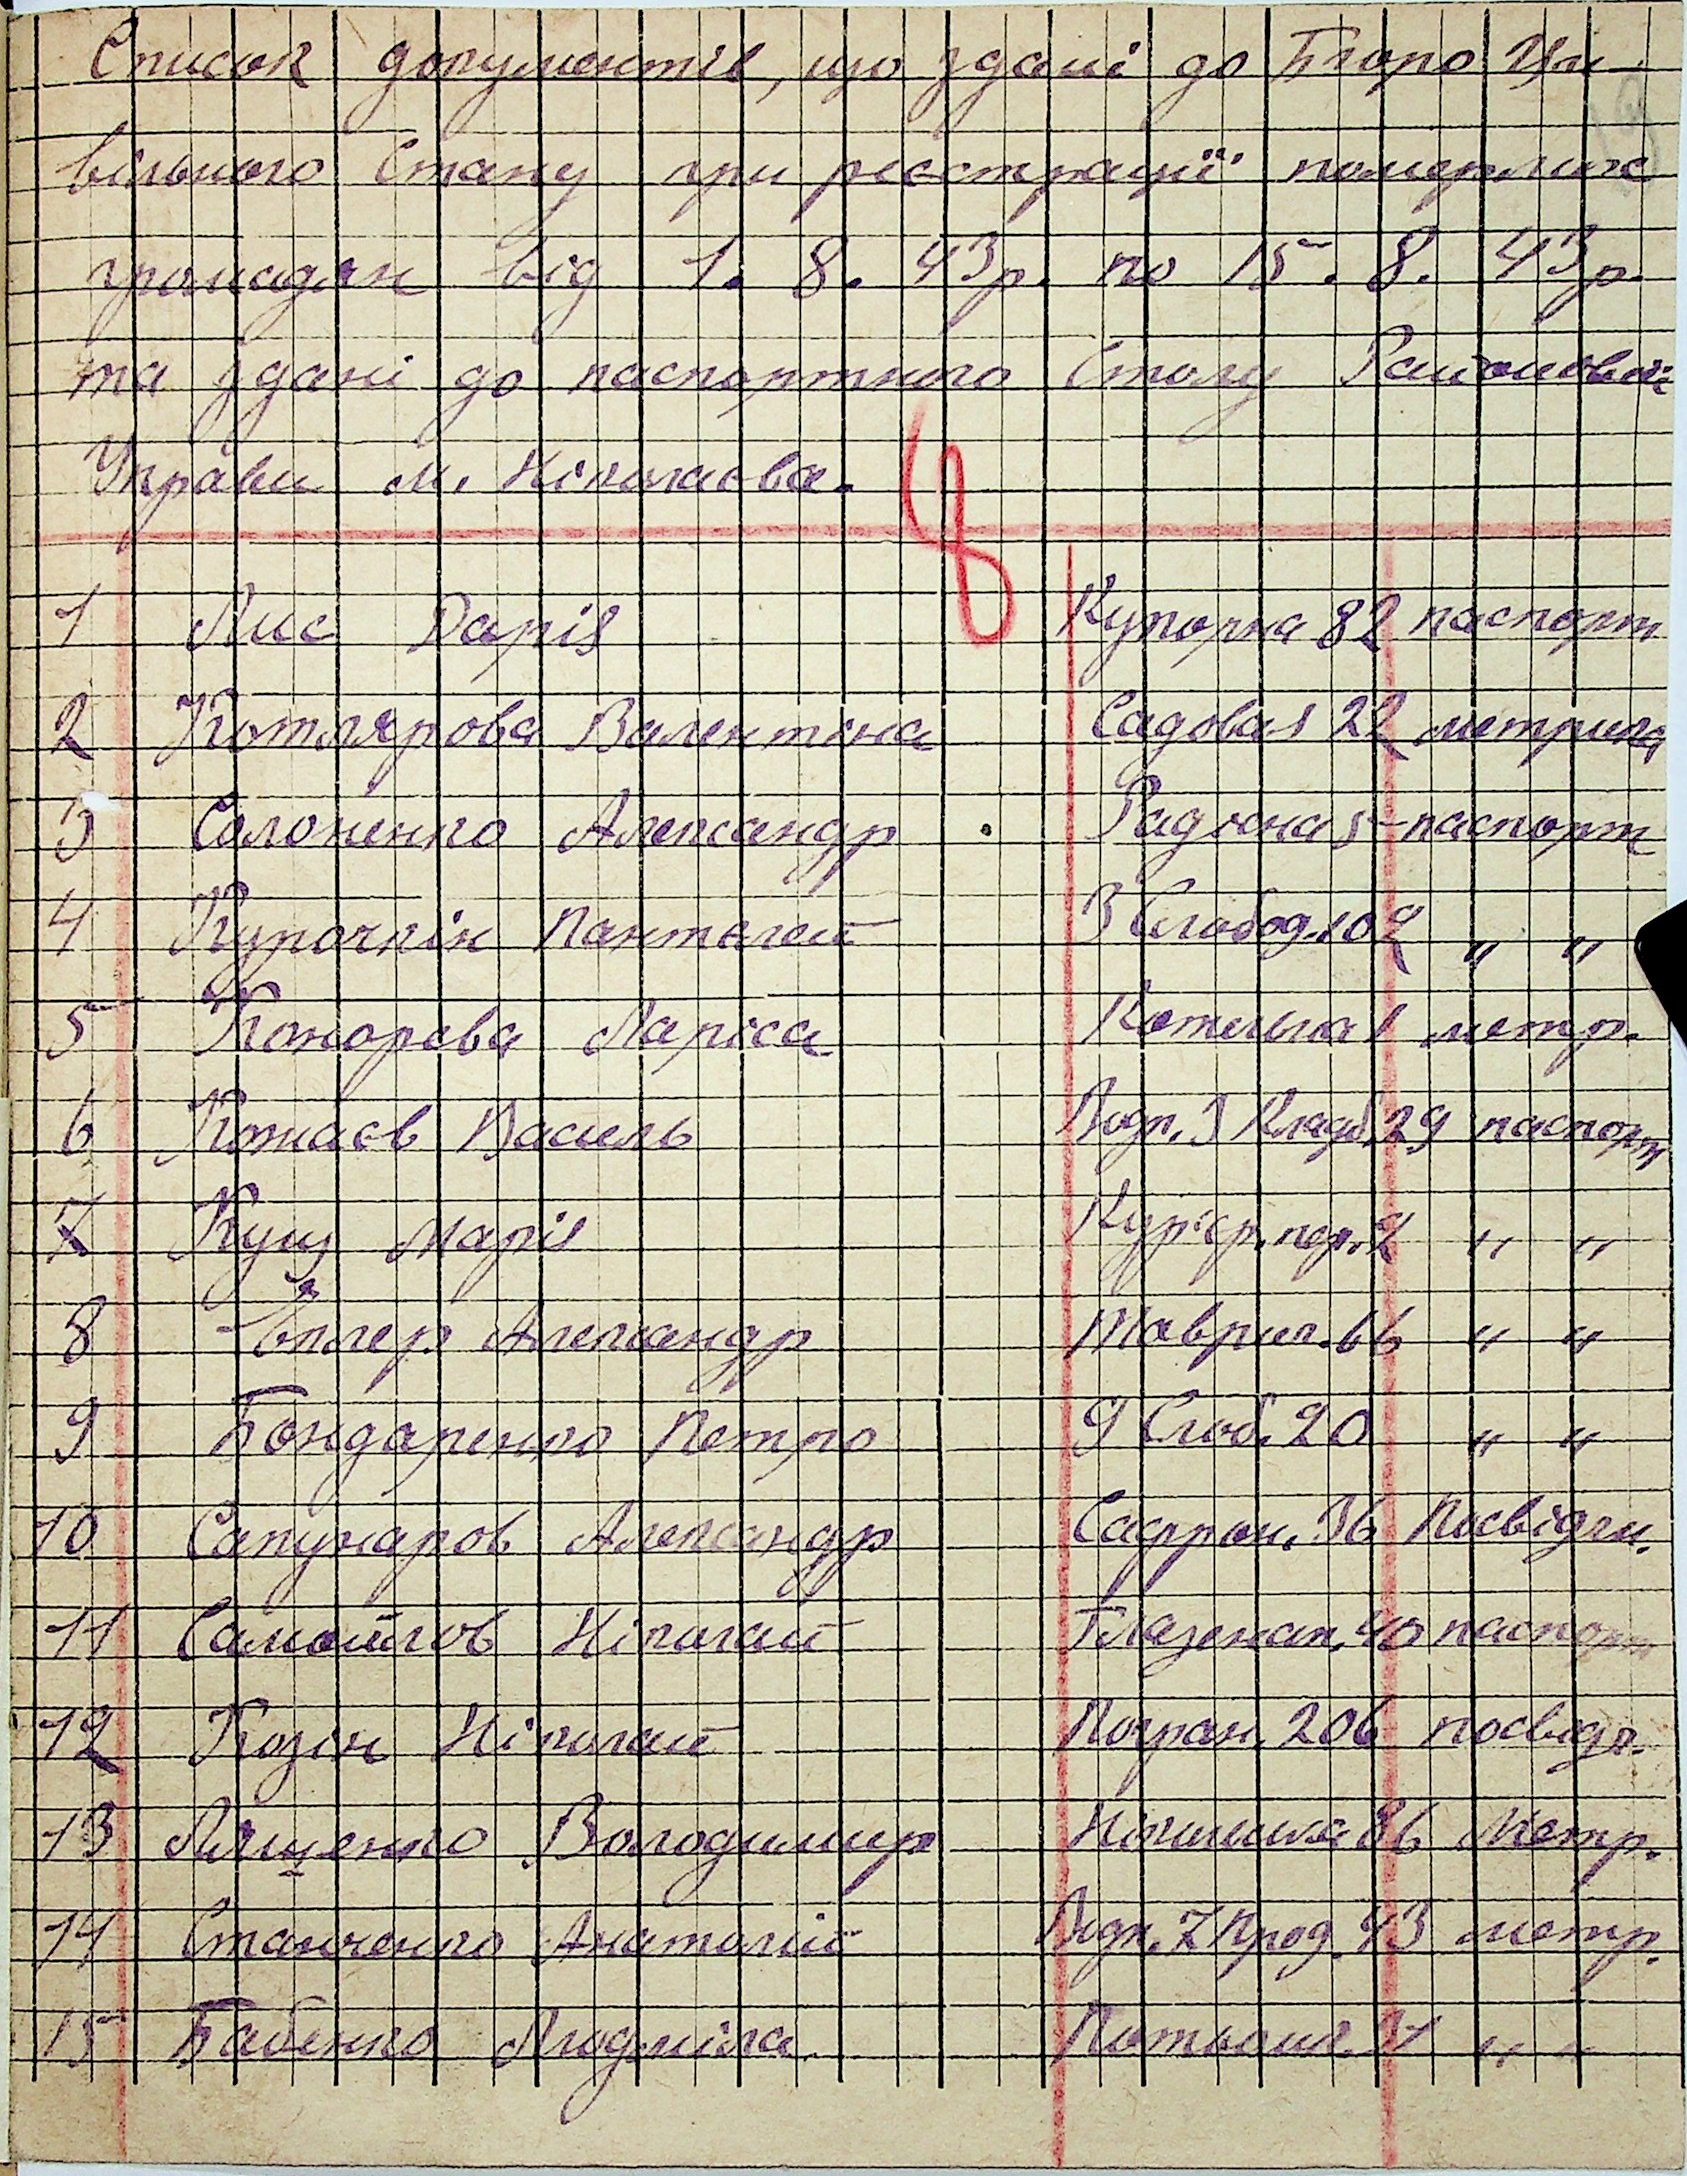 Список документів, що здані до Бюро Ци-
вільного Стану при реєстрації померлих
громадян від 1. 8. 43р. по 15. 8. 43р.
та здані до паспортного Столу Районовой
Управи м. Ніколаєва.
8
1 Лис Дарія Купорна 82 паспорт
2 Котлярова Валентіна Садовая 22 метрика
3 Солоненко Александр Радісна 5 паспорт
4 Курочкін Пантелей 3 Слобод. 102 " "
5 Конорєва Ларіса Котельна 1 метр.
6 Кожаєв Василь Подп. 3 Кладб. 29 паспорт
7 Кущ Марія Кур'єр. пер. 2 " "
8 Александр Таврич. 66 " "
9 Бондаренко Петро 9 Слоб. 20 " "
10 Сапунаров Александр Сафрон. 36 Посвідчи.
11 Самойлов Ніколай Глазенап. 40 паспорт
12 Козін Ніколай Погран. 206 посвідч.
13 Лященко Володимир 86 Метр.
14 Станченко Анатолій 43 метр.
15 Бабенко Людміла " "